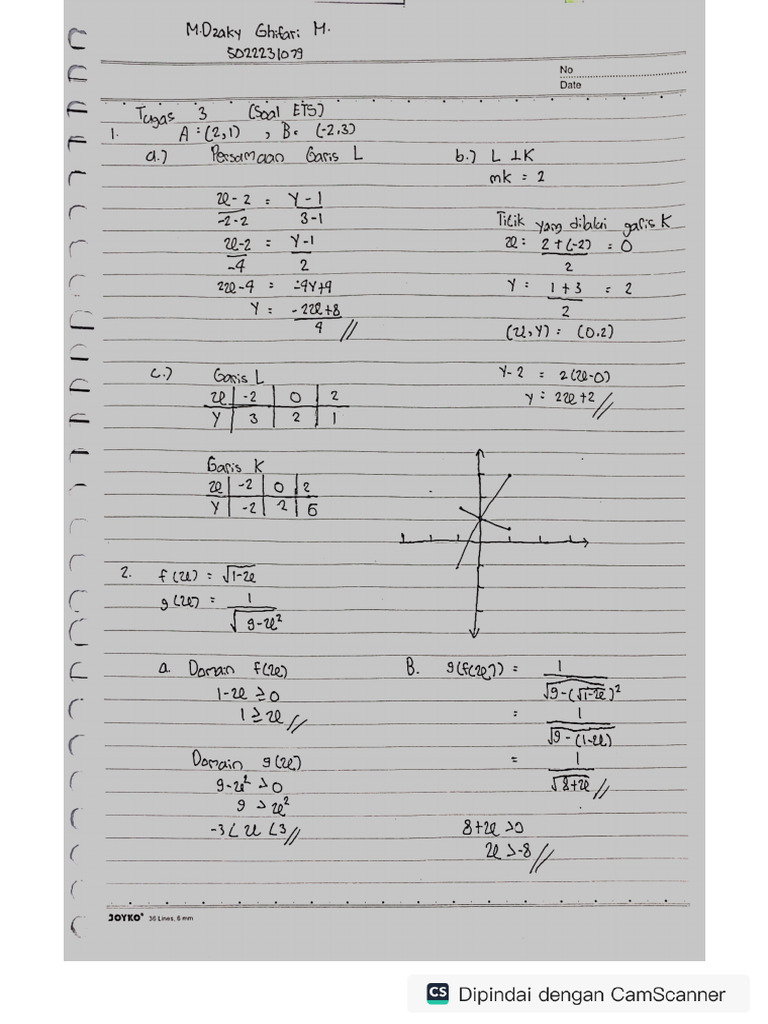 M.Dzaky Ghifari M.
5022231079
No
Date
Tugas 3 (Soal ETS)
1. A : (2,1) , B = (-2,3)
a.) Persamaan Garis L
x-2 / -2-2 = y-1 / 3-1
x-2 / -4 = y-1 / 2
2x-4 = -4y+4
y = -2x+8 / 4 //
b.) L ⊥ K
mk = 2
Titik yang dilalui garis K
x = 2+(-2) / 2 = 0
y = 1+3 / 2 = 2
(x,y) = (0.2)
y-2 = 2(x-0)
y = 2x+2 //
c.) Garis L
x | -2 | 0 | 2
y | 3 | 2 | 1
Garis K
x | -2 | 0 | 2
y | -2 | 2 | 6
2. f(x) = √1-x
g(x) = 1 / √9-x²
a. Domain f(x)
1-x ≥ 0
1 ≥ x //
Domain g(x)
9-x² > 0
9 > x²
-3 < x < 3 //
B. g(f(x)) = 1 / √9-(√1-x)²
= 1 / √9-(1-x)
= 1 / √8+x //
8+x > 0
x > -8 //
JOYKO® 36 Lines, 6 mm
CS Dipindai dengan CamScanner